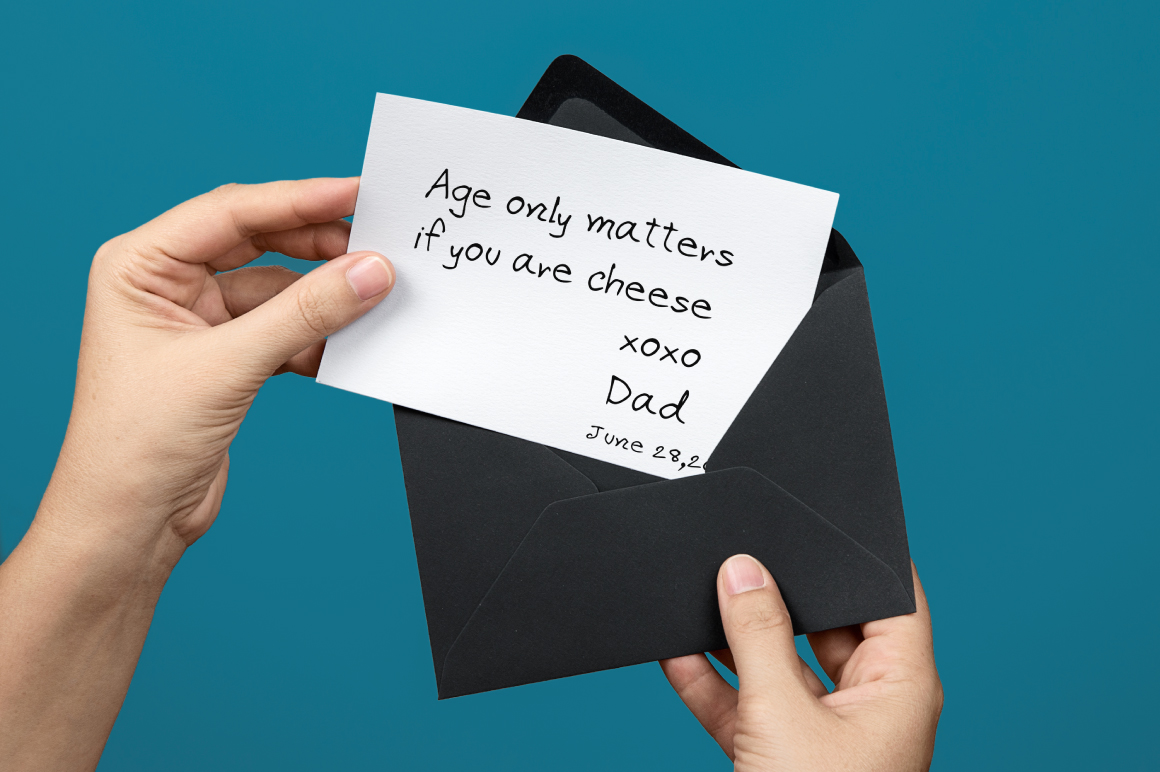 Age only matters
if you are cheese
xoxo
Dad
June 28,